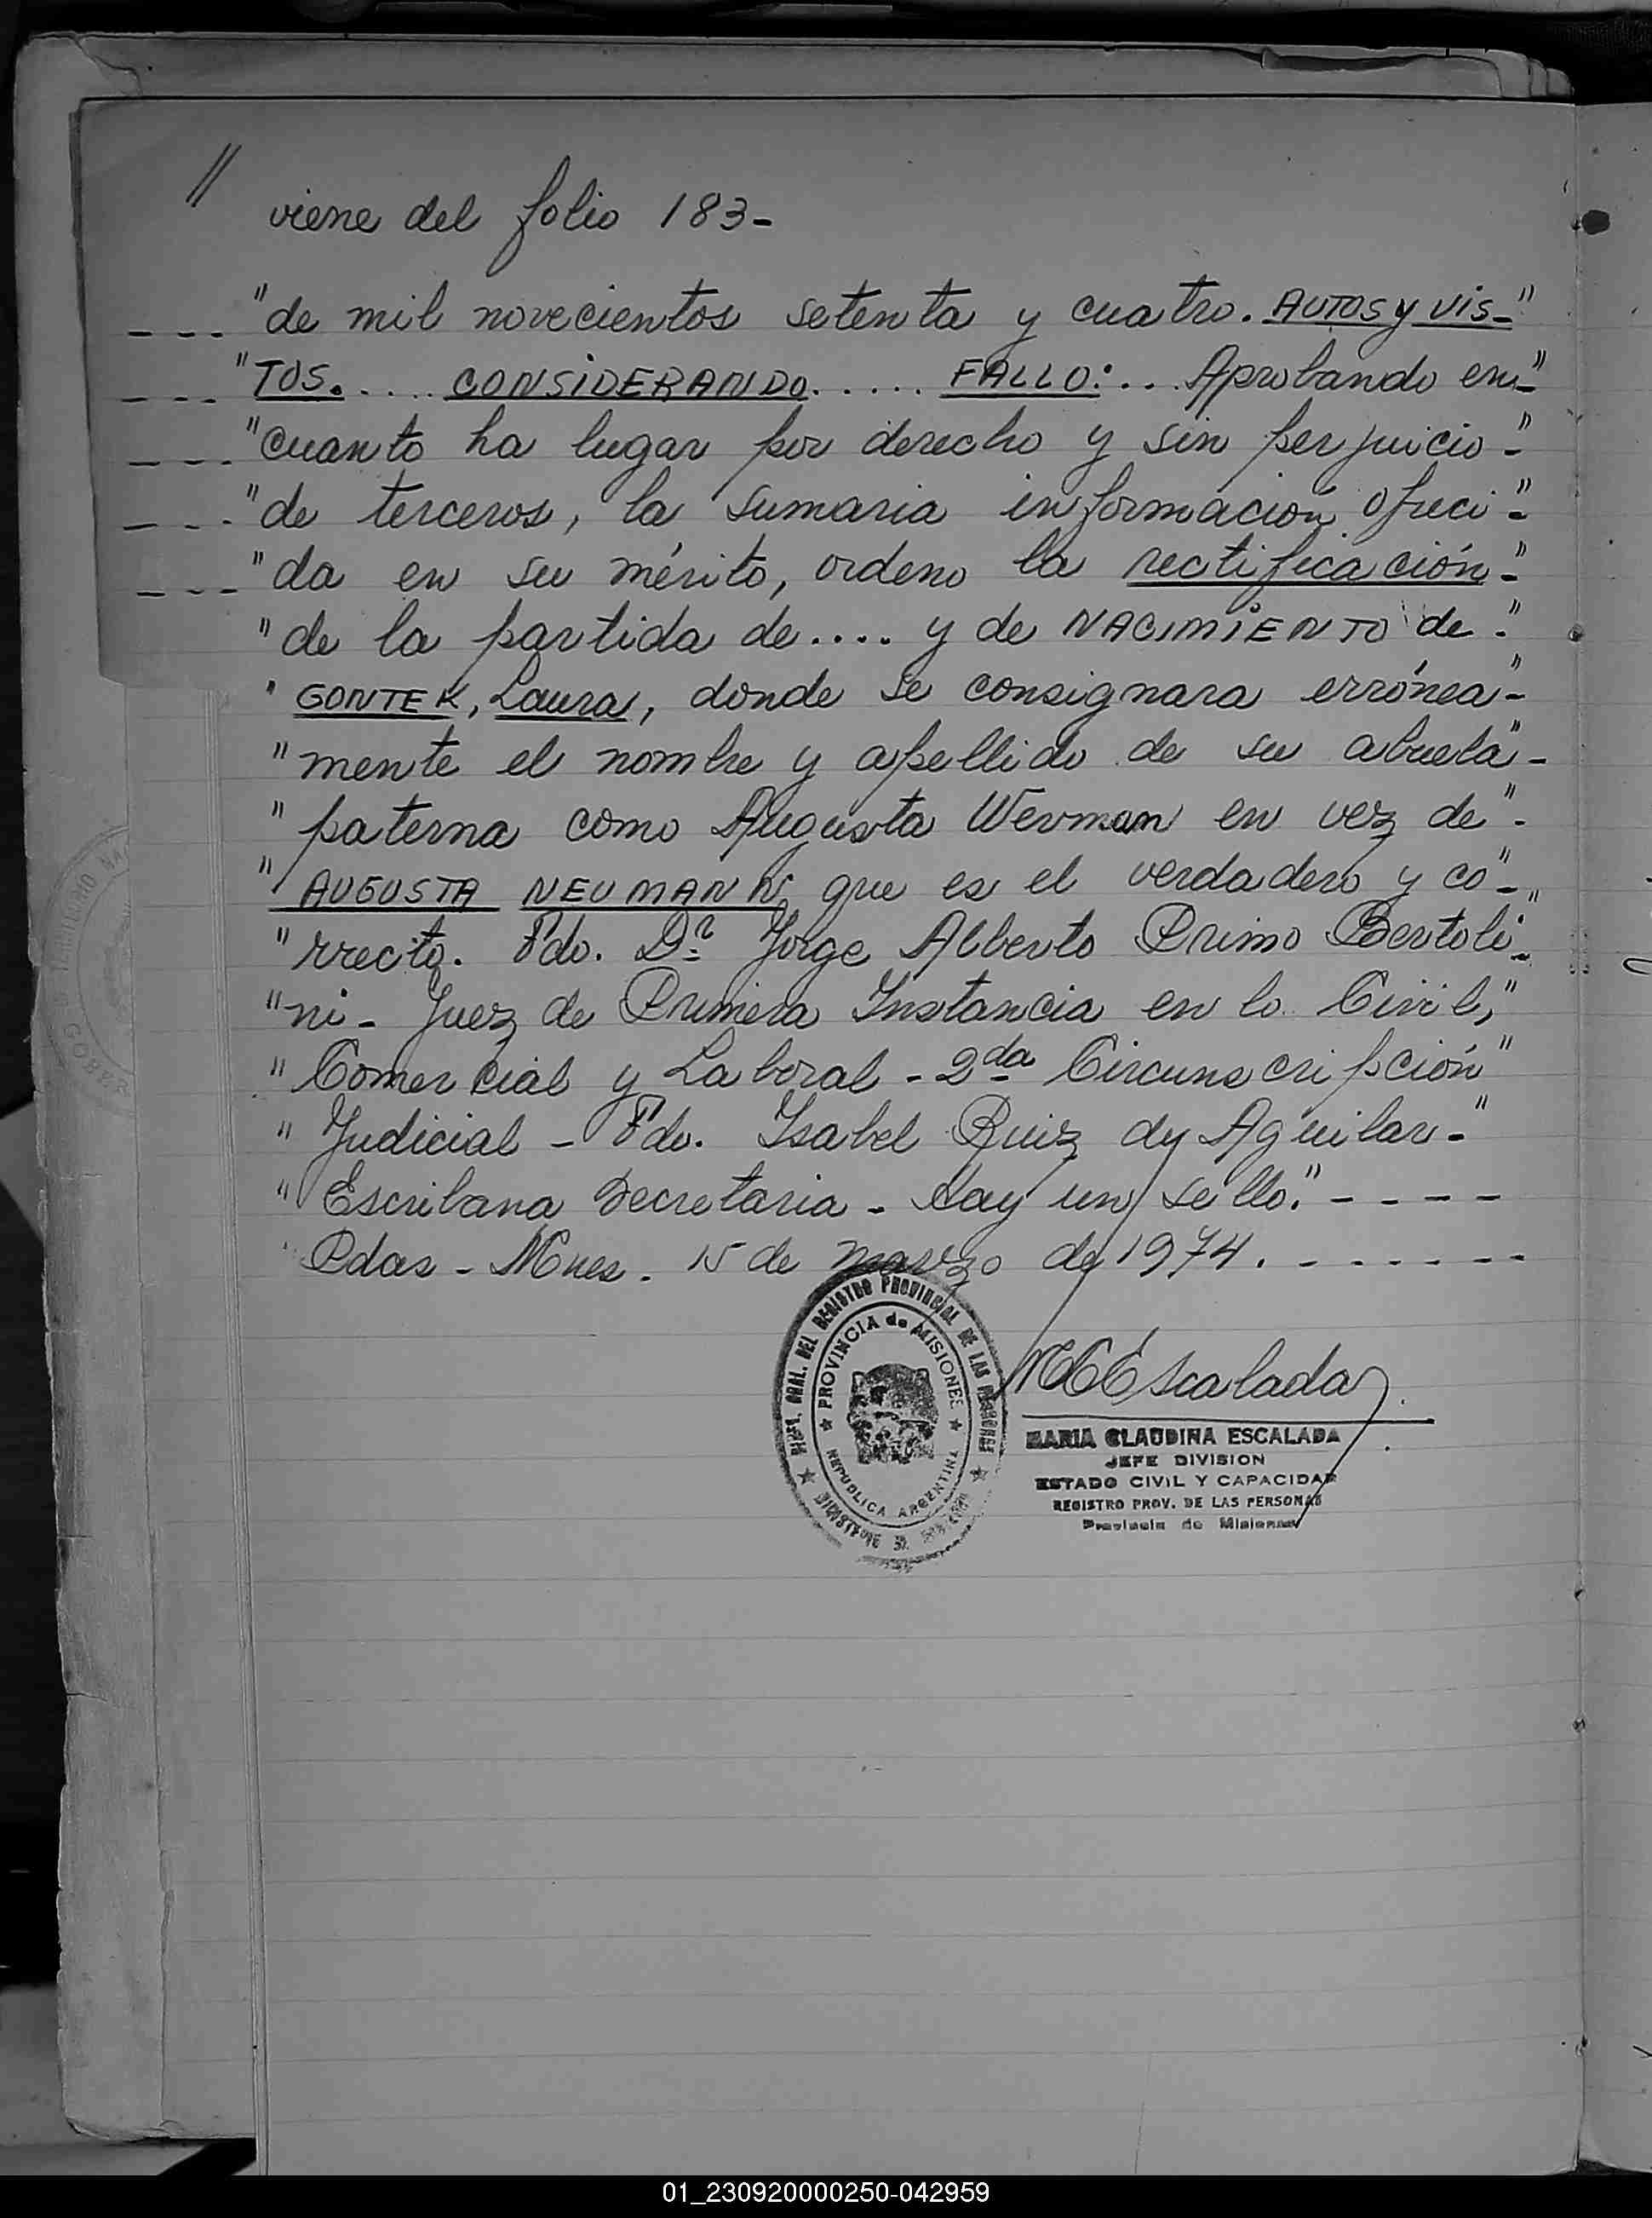 // viene del folio 183-
"de mil novecientos setenta y cuatro. AUTOS y VIS-"
"TOS..... CONSIDERANDO...... FALLO:... Aprobando en-"
"cuanto ha lugar por derecho y sin perjuicio-"
"de terceros, la sumaria información ofreci-"
"da en su mérito, ordeno la rectificación-"
"de la partida de.... y de NACIMIENTO de-"
"GONTEK, Laura, donde se consignara errónea-"
"mente el nombre y apellido de su abuela"-
"paterna como Augusta Werman en vez de"-
"AUGUSTA NEUMANN, que es el verdadero y co-"
"rrecto. Fdo. Dr. Jorge Alberto Primo Bertoli-"
"ni- Juez de Primera Instancia en lo Civil,"
"Comercial y Laboral - 2da Circunscripción"
"Judicial - Fdo. Isabel Ruiz de Aguilar-"
"Escribana Secretaria - Hay un sello." - - - -
Pdas - Mnes. 15 de marzo de 1974. - - - - - -
DIREC. GRAL. DEL REGISTRO PROVINCIAL DE LAS PERSONAS
PROVINCIA de MISIONES
REPUBLICA ARGENTINA
MCEscalada
MARIA CLAUDINA ESCALADA
JEFE DIVISION
ESTADO CIVIL Y CAPACIDAD
REGISTRO PROV. DE LAS PERSONAS
Provincia de Misiones
01_230920000250-042959